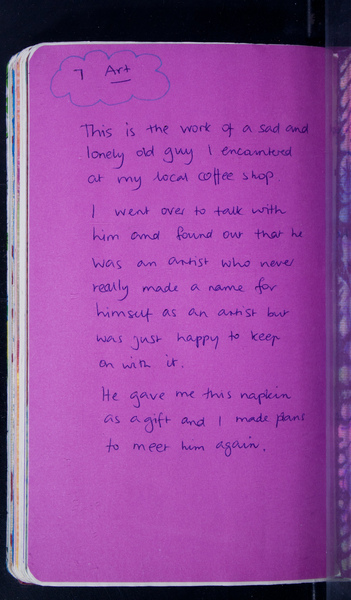 7 Art
This is the work of a sad and
lonely old guy I encountered
at my local coffee shop
I went over to talk with
him and found out that he
was an artist who never
really made a name for
himself as an artist but
was just happy to keep
on with it.
He gave me this napkin
as a gift and I made plans
to meet him again.